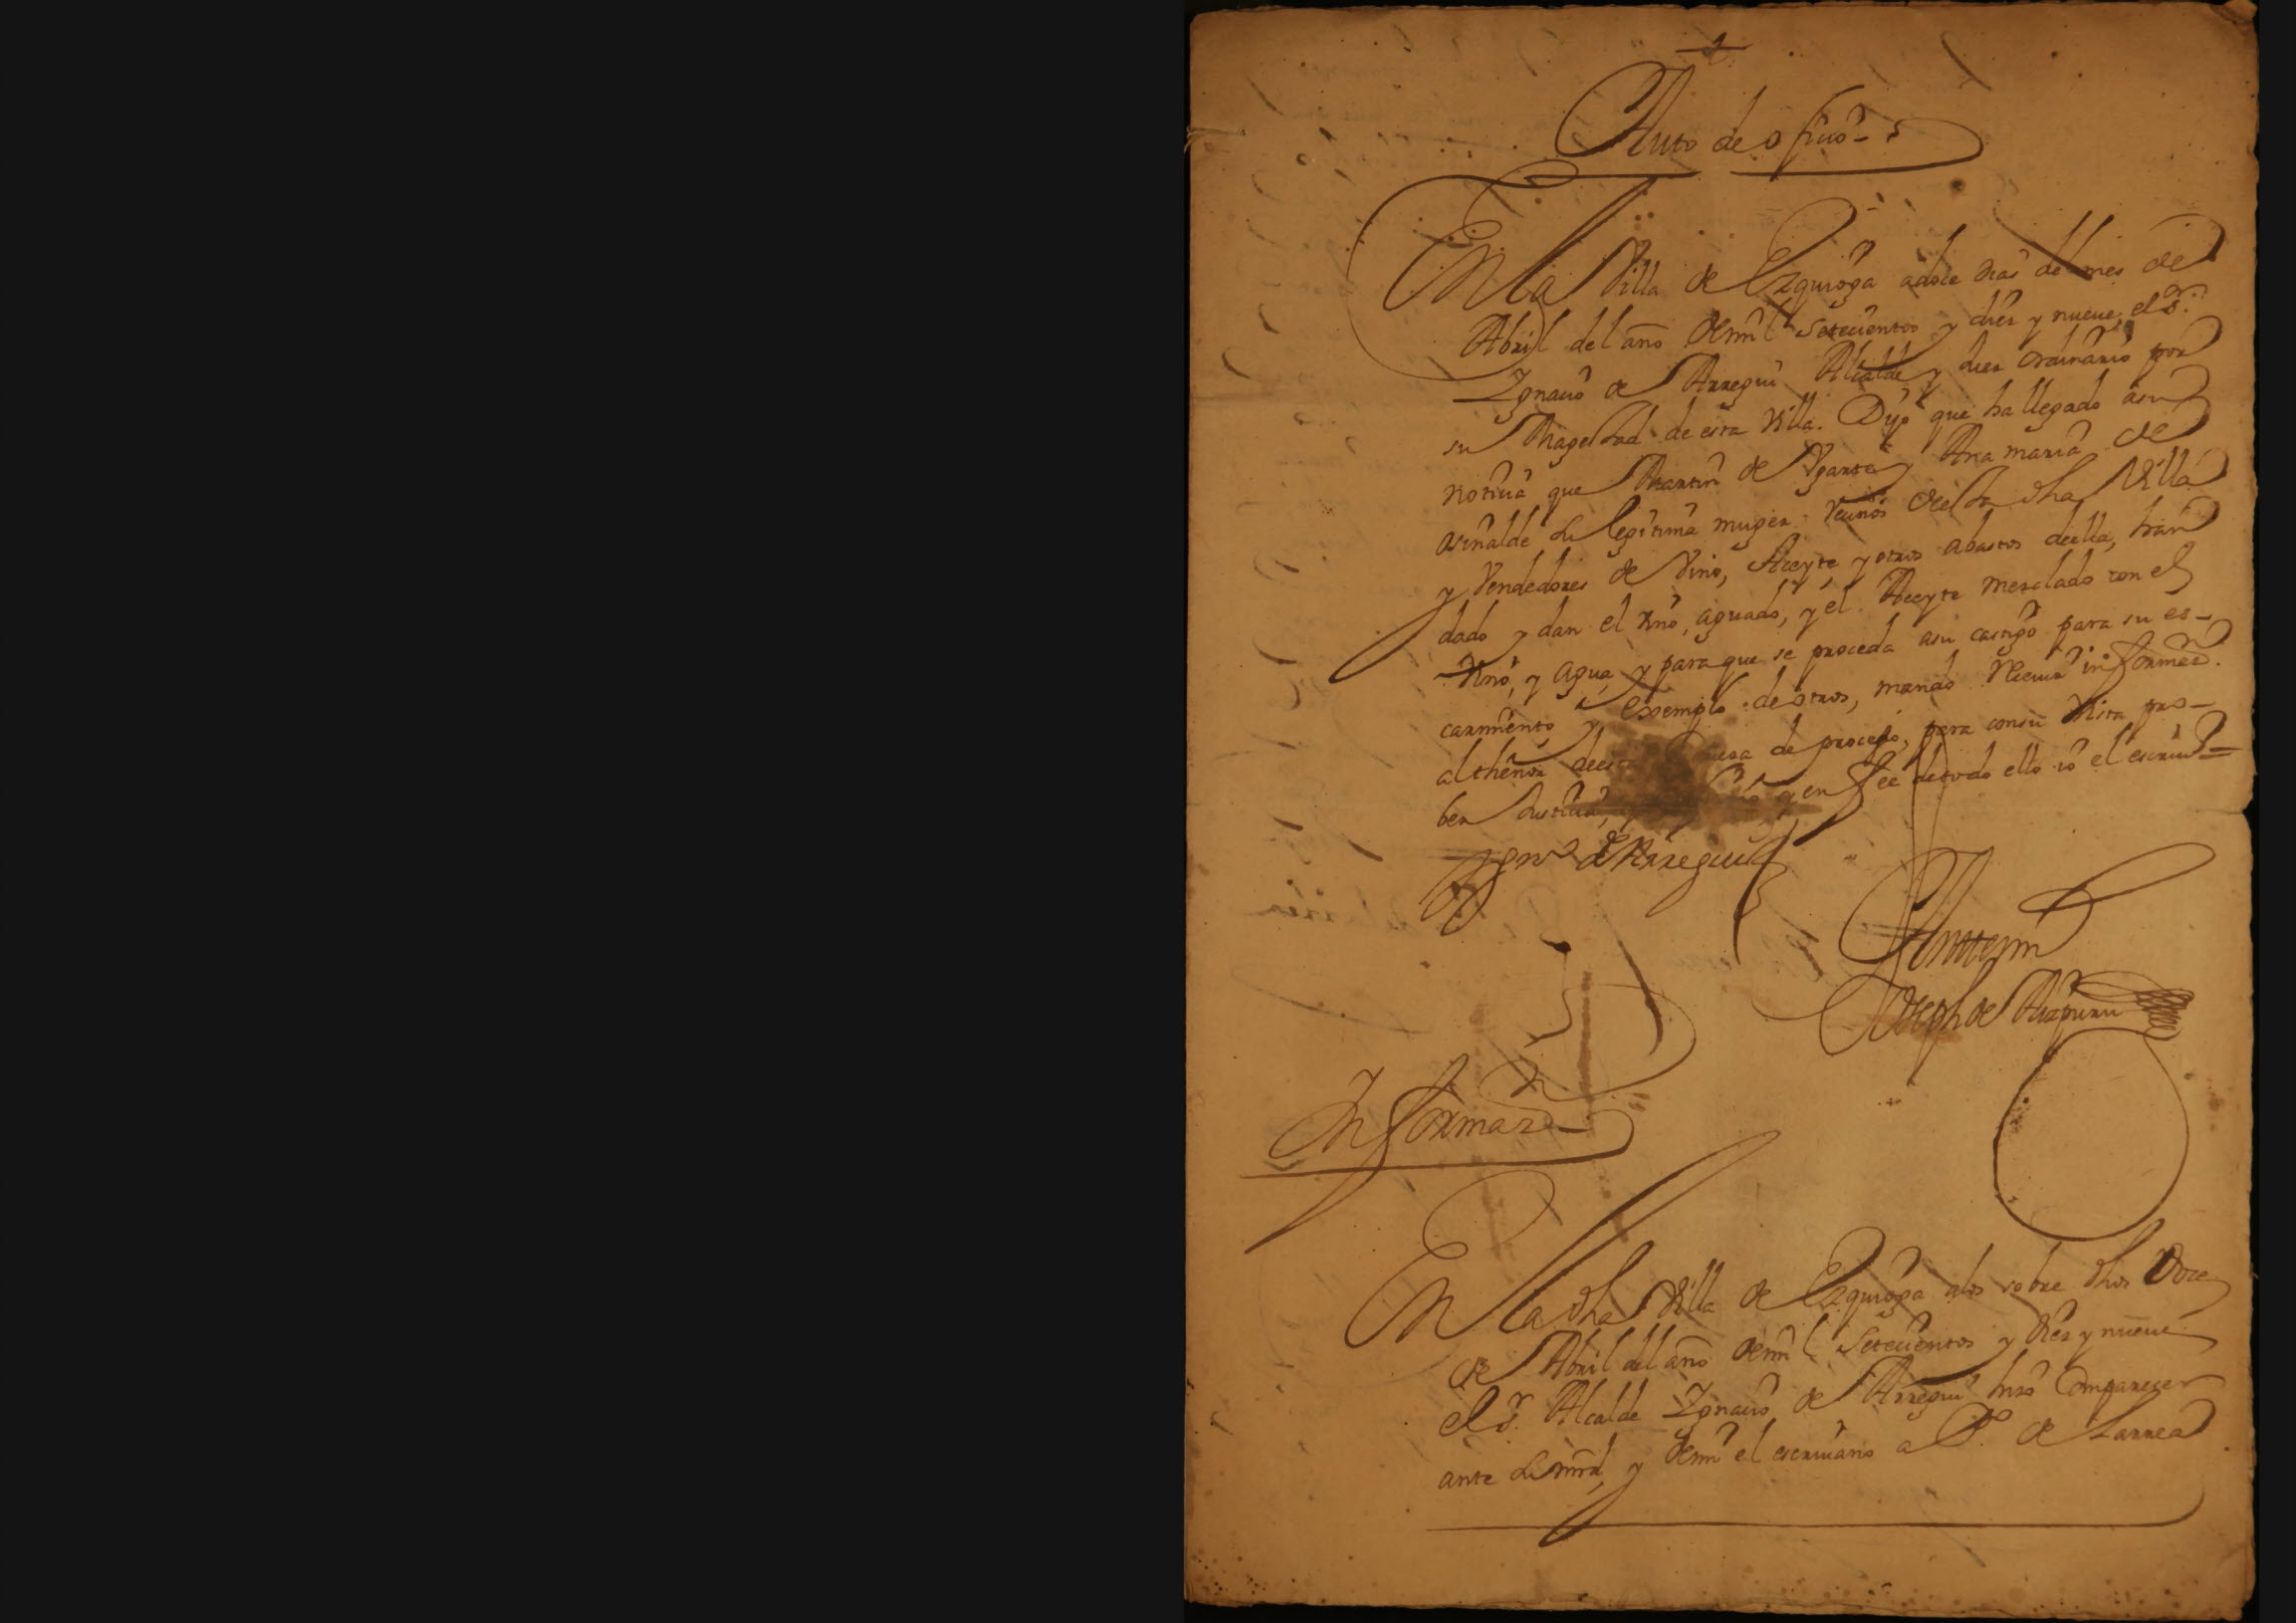 Auto de ofiçio
En la Villa de Ezquioga a doce dias del mes de
Abril del año de mil Setecientos y diez y nueve, el Sr.
Ignacio de Arregui Alcalde y Juez ordinario por
su Magestad de esta Villa. Dijo que ha llegado a su
noticia que Martin de Ugarte y Ana maria de
su legitima muger vecinos de esta dha Villa
y Vendedores de Vino, Aceyte y otros abastos de ella, han
dado y dan el Vino, aguado, y el Aceyte mesclado con el
Vino, y agua, y para que se proceda a su castigo para su es-
carmiento y exemplo de otros, mando Recivir informaçn.
al thenor de de proceso, para con su Vista pro-
ber Justicia, y en fee de todo ello io el escriuo
Igno de Arregui
Antte mi
Joseph de
Informazn
En la dha Villa de Ezquioga a los sobre dhos Doce
de Abril del año de mil Setecientos y Diez y nueve
el Sr. Alcalde Ignacio de Arregui hizo Comparecer
ante su mrd, y de mi el escriuano a Po. de Larrea